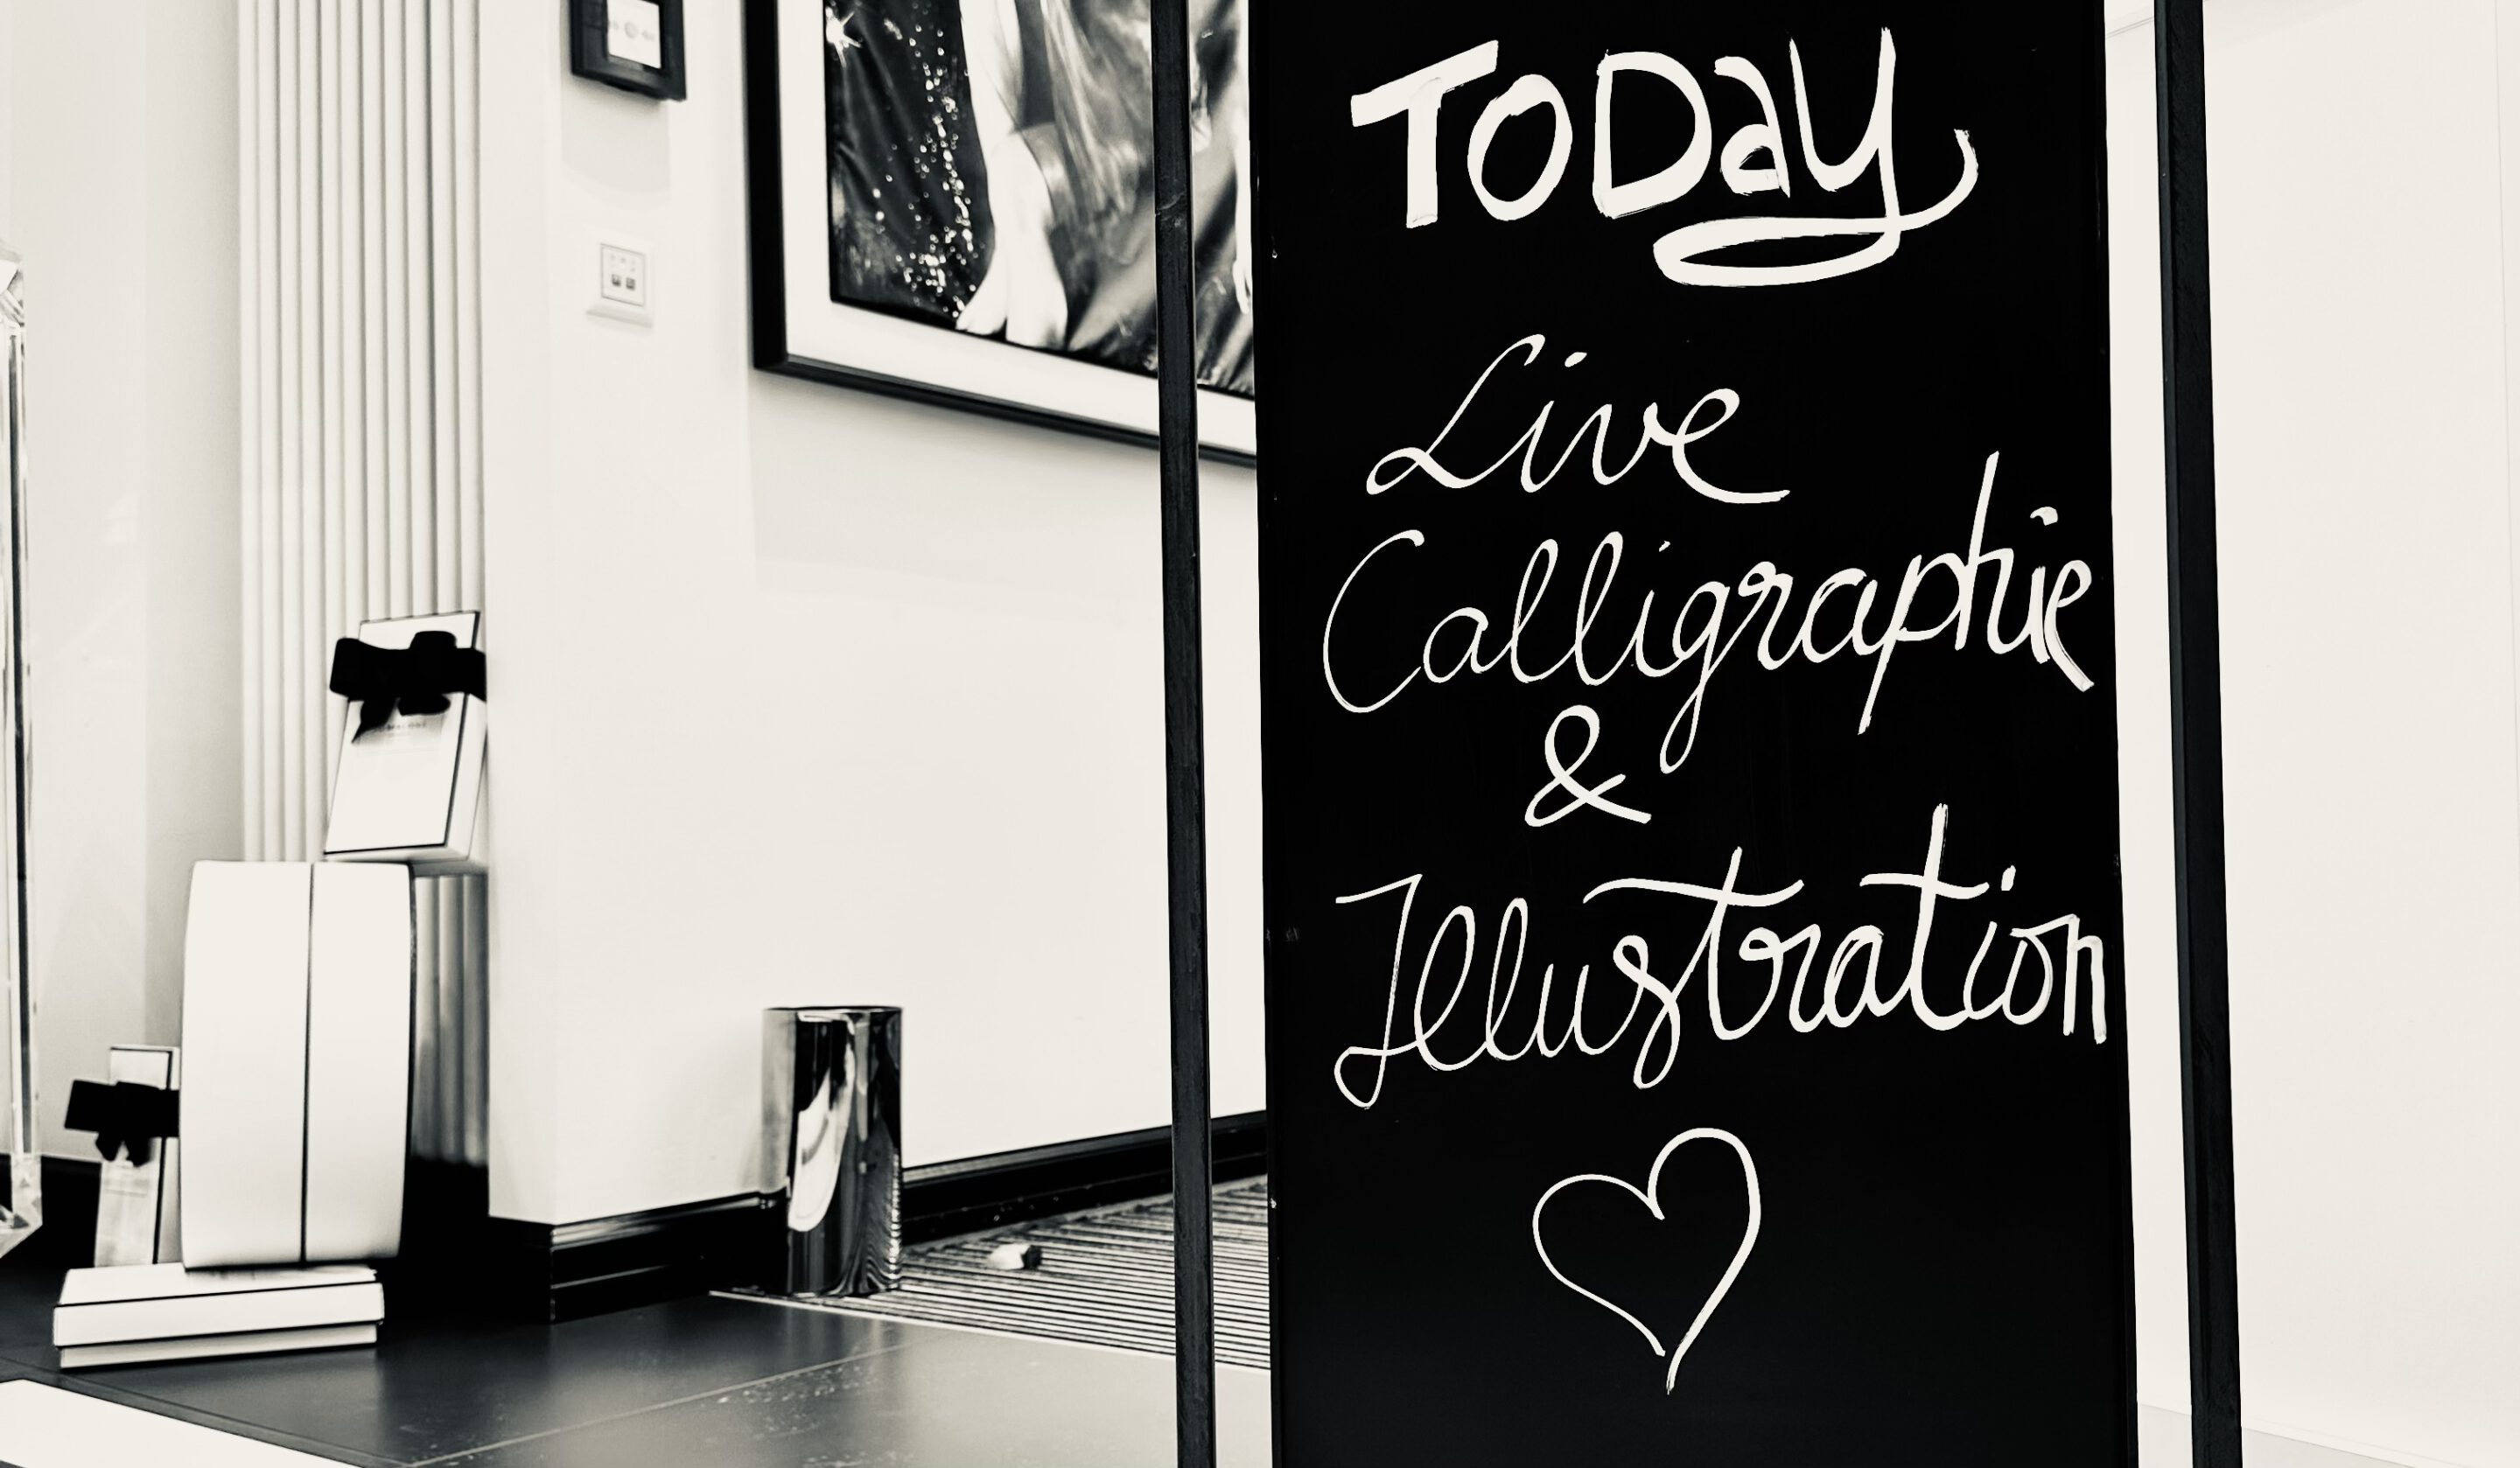 Today
Live
Calligraphie
&
Illustration